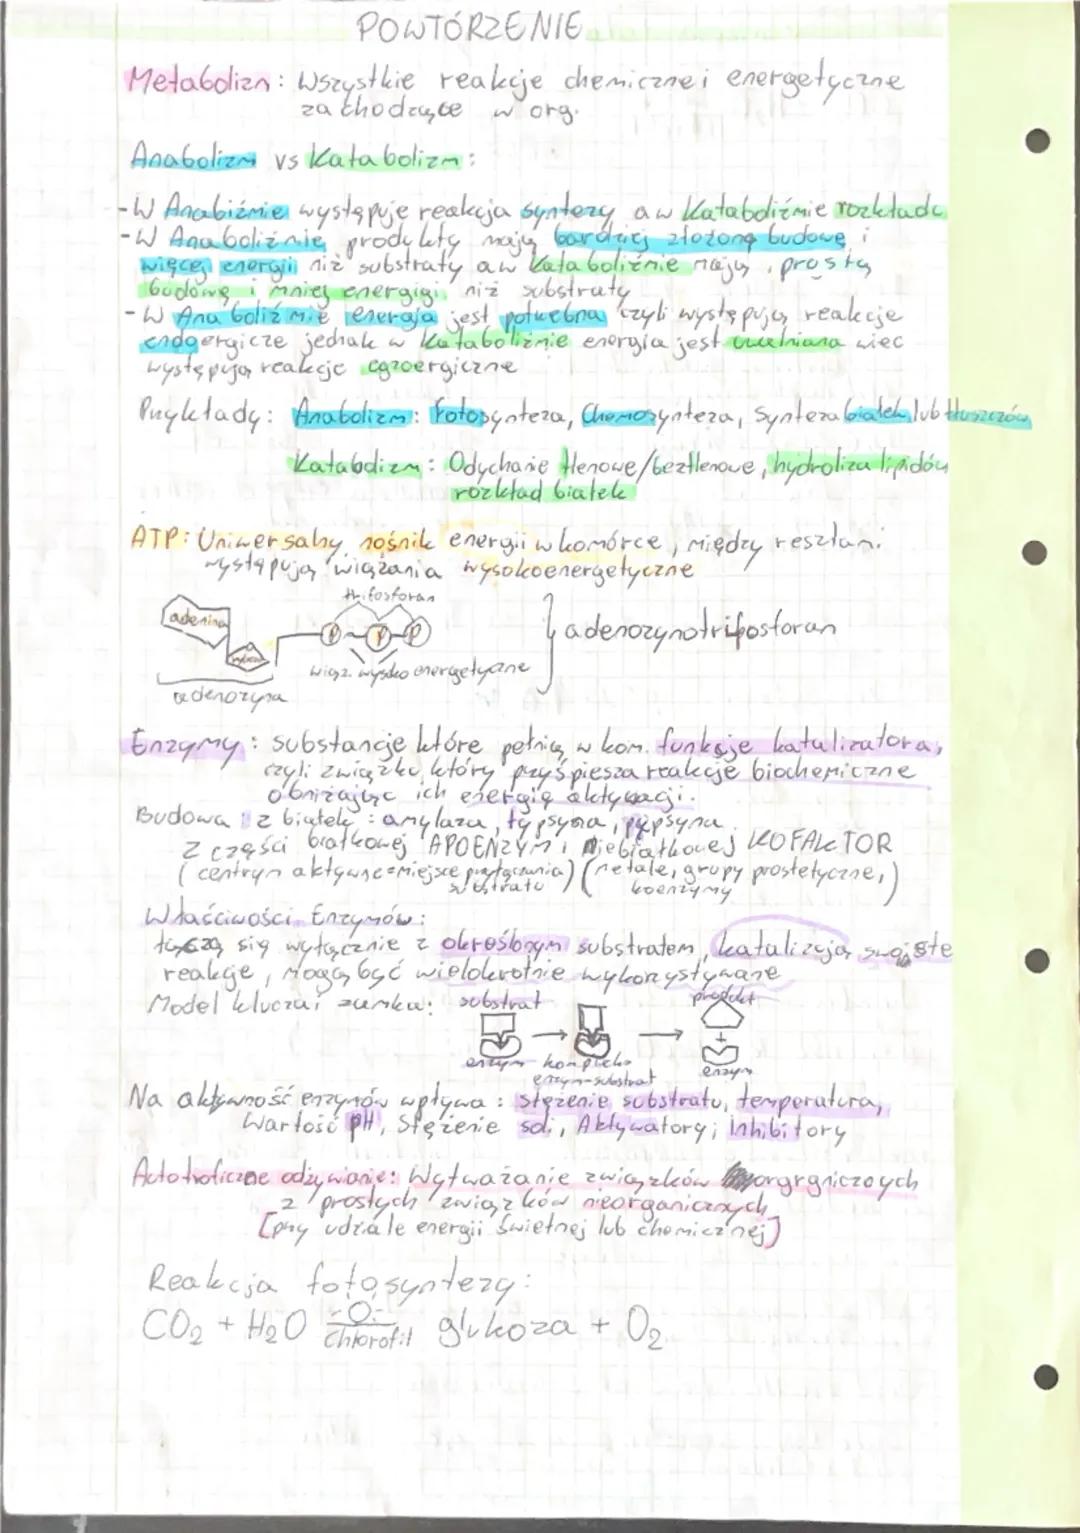 POWTÓRZENIE
Metabolizm: Wszystkie reakcje chemiczne i energetyczne
zachodzące w org.
Anabolizm vs Katabolizm:
-W Anabiźmie występuje reakcja syntezy a w Kataboliźmie rozkładu
-W Anaboliźmie produkty mają bardziej złożoną budowę i
więcej energii niż substraty a w Kataboliźmie mają prostą
budowę i mniej energigi niż substraty
-W Anaboliźmie energia jest potrzebna czyli występują reakcje
endoergicze jednak w Kataboliźmie energia jest uwalniana wiec
występują reakcje egzoergiczne
Przykłady: Anabolizm: Fotosynteza, Chemosynteza, Synteza białek lub tłuszczów
Katabolizm: Odychanie tlenowe/beztlenowe, hydroliza lipidów
rozkład białek
ATP: Uniwersalny nośnik energii w komórce, między resztami
występują wiązania wysokoenergetyczne
trifosforan
adenina
P-P-P
ryboza
wiąz. wysoko energetyczne
adenozyna
adenozynotrifosforan
Enzymy: substancje które pełnią w kom. funkcje katalizatora,
czyli związku który przyśpiesza reakcje biochemiczne
obniżając ich energię aktywacji.
Budowa: z białek: amylaza, typsyna, pepsyna
z części białkowej APOENZYM i niebiałkowej KOFAKTOR
(centrym aktywne=miejsce przyłączania substratu) (metale, grupy prostetyczne, koenzymy)
Właściwości Enzymów:
łączą się wyłącznie z określonym substratem, katalizują swoiste
reakcje, mogą być wielokrotnie wykorzystywane
Model klucza i zamka: substrat
produkt
enzym kompleks
enzym-substrat
enzym
Na aktywność enzymów wpływa: stężenie substratu, temperatura,
Wartość pH, Stężenie soli, Aktywatory i Inhibitory
Autotroficzne odżywianie: Wytważanie związków orgrgniczoych
z prostych związków nieorganicznych
[przy udziale energii świetnej lub chemicznej]
Reakcja fotosyntezy:
CO₂ + H₂O chlorofil glukoza + O₂